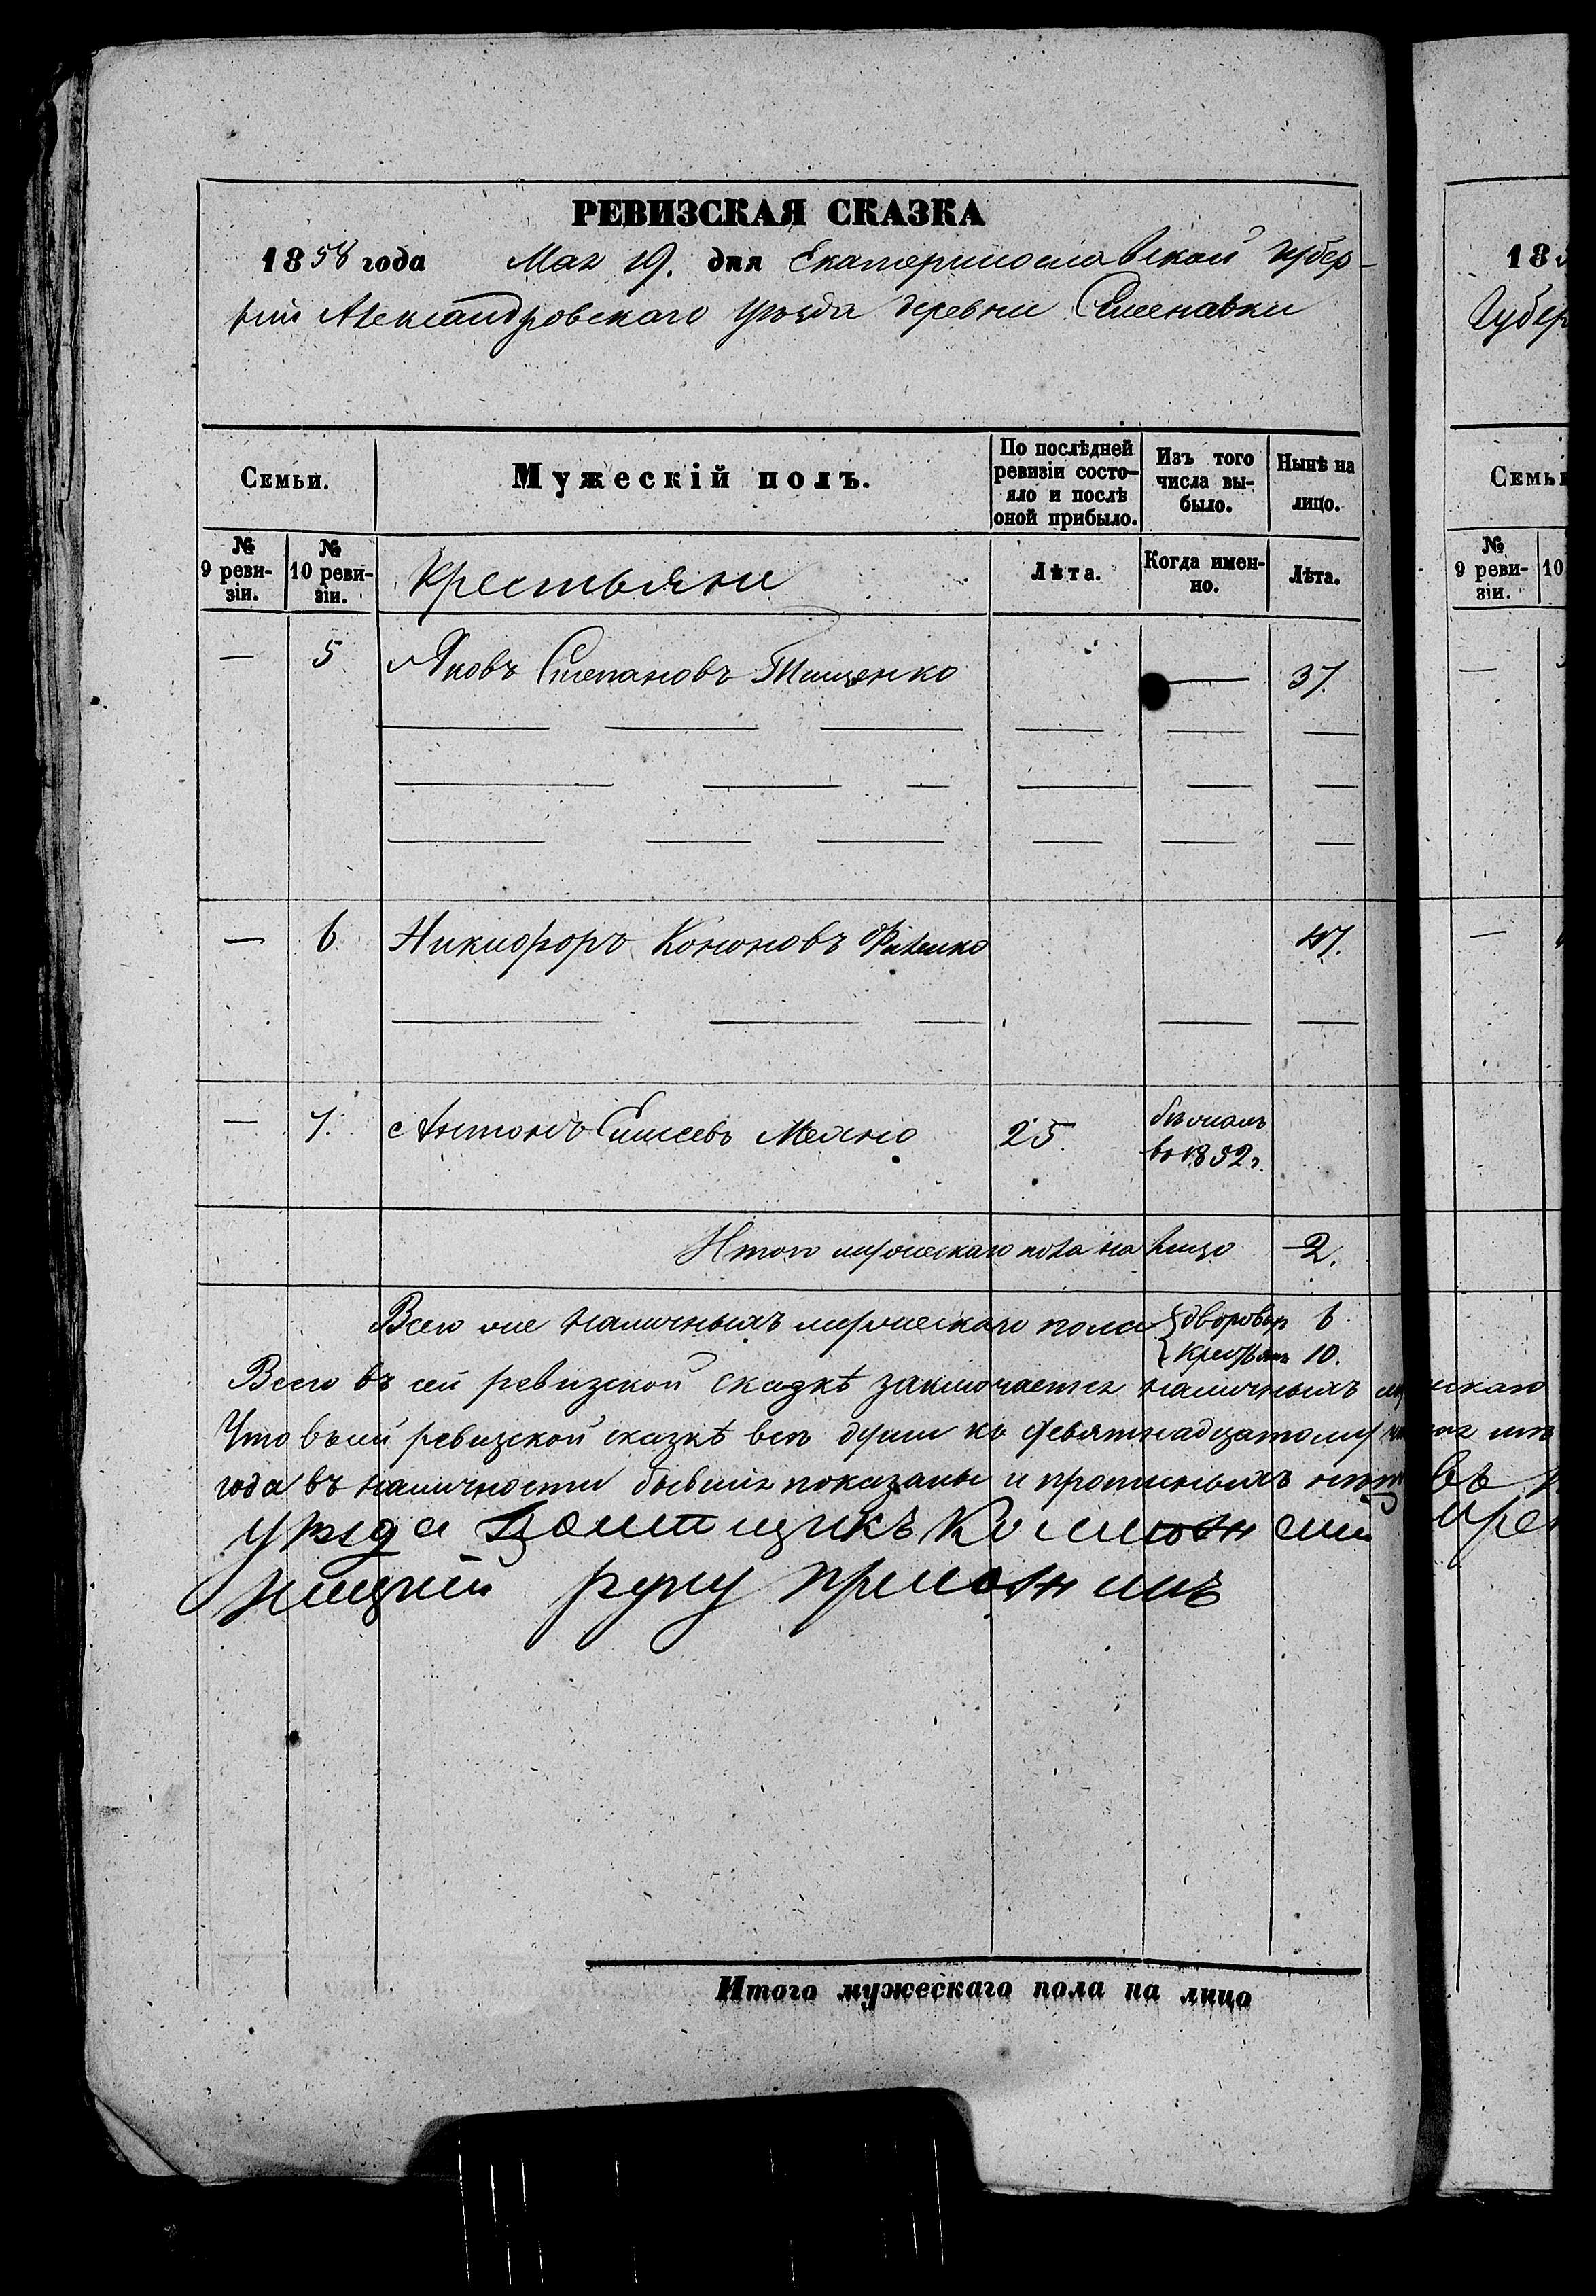 РЕВИЗСКАЯ СКАЗКА
1858 года Мая 19. дня Екатеринославской Губер-
нии Александровскаго уѣзда деревни Семенавки
Семьи.
Мужескій полъ.
По послѣдней ревизіи состо-яло и послѣ оной прибыло.
Изъ того числа вы-было.
Нынѣ на лицо.
№ 9 реви-зіи.
№ 10 реви-зіи.
Крестьяне
Лѣта.
Когда имен-но.
Лѣта.
— 5 Яковъ Степановъ Тищенко — 37.
— 6. Никифоръ Кононовъ 47.
— 7. Антонъ Елисеевъ 25. бѣжалъ
во 1852 г.
Итого мужескаго пола на лицо 2.
Всего же наличныхъ мужескаго пола {дворовыхъ 6.
{крестьянъ 10.
Всего въ сей ревизской сказкѣ заключается наличныхъ
Что въ сей ревизской сказкѣ всѣ души къ девятнадцатому
года въ наличности бывшіе показаны и прописныхъ нѣтъ въ
уѣзда помещикъ
руку приложилъ
Итого мужескаго пола на лицо
18
Губер
Семьи
№ 9 реви-зіи.
10
—
—